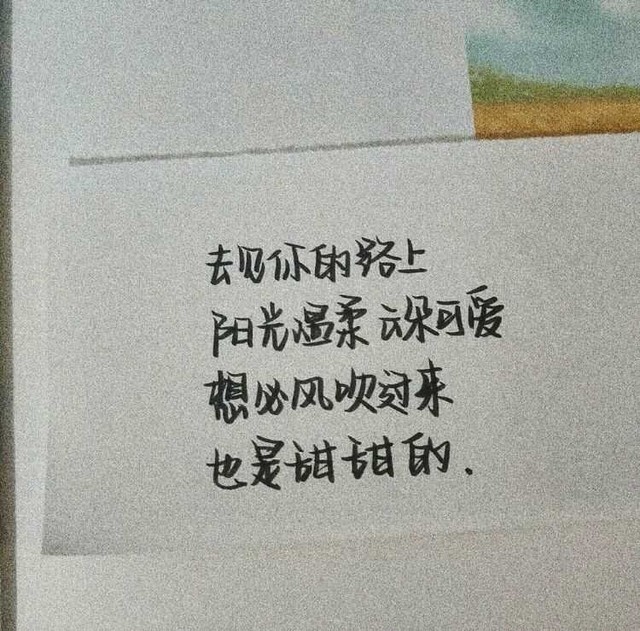 去见你的路上
阳光温柔云朵可爱
想必风吹过来
也是甜甜的.